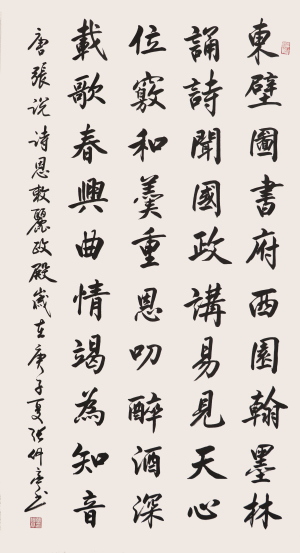 東壁圖書府西園翰墨林
誦詩聞國政講易見天心
位竅和羹重恩叨醉酒深
載歌春興曲情竭為知音
唐張说诗恩敕麗政殿歲在庚子夏张仲亭书